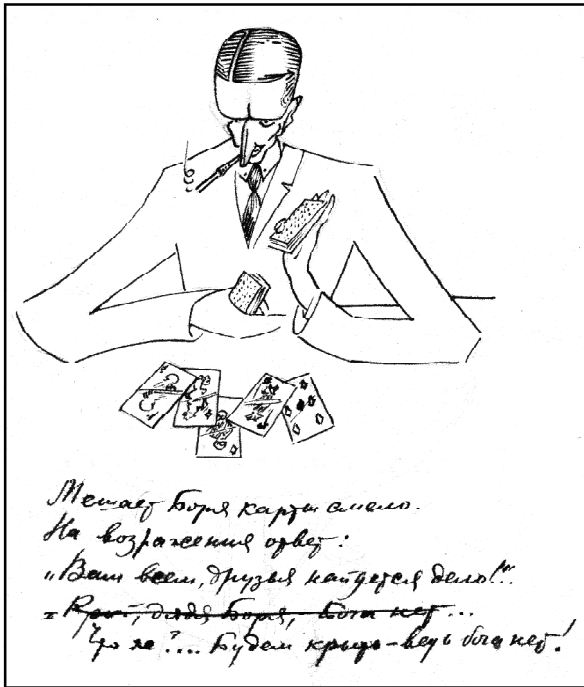 Мешает Боря карты смело.
На возражения ответ:
„Вам всем, друзья найдется дело!“..
- Крой, дядя Боря, Бога нет...
Что же?.... Будем крыть – ведь бога нет!